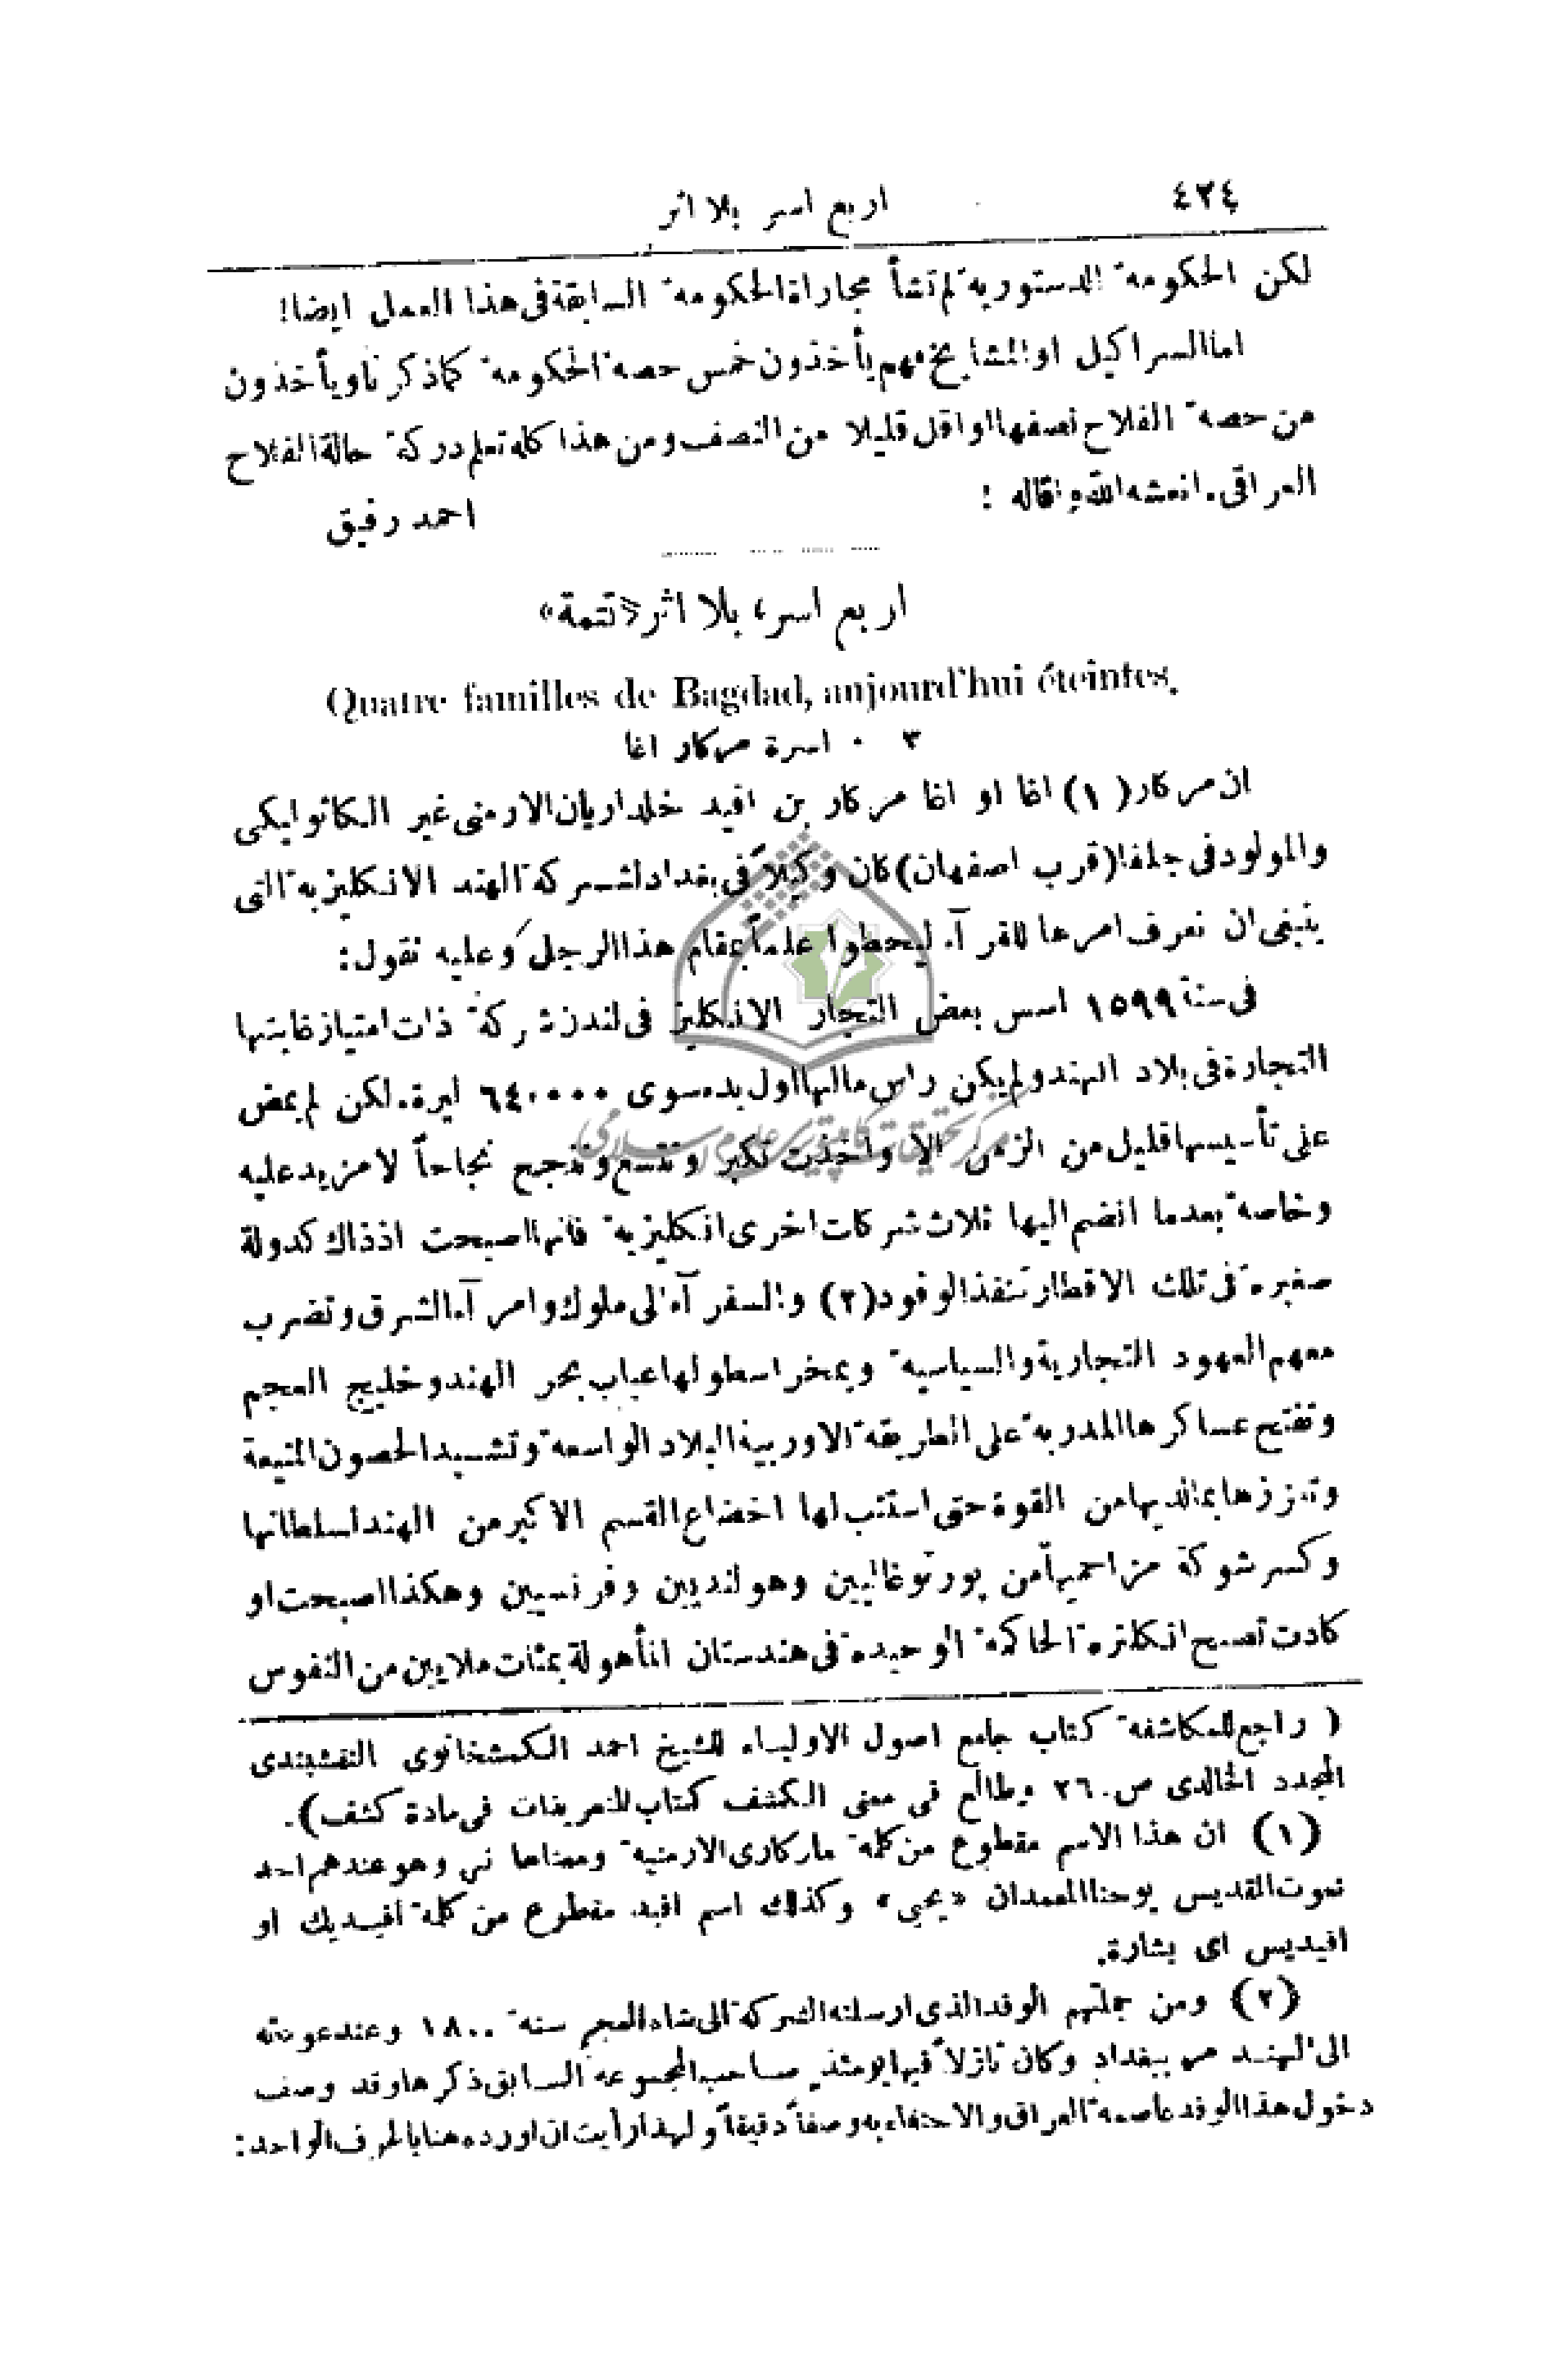 ٤٢٤ اربع اسر بلا اثر
لكن الحكومة الدستورية لم تشأ مجاراة الحكومة السابقة فى هذا العمل ايضا!
اما السراكيل او المشايخ فهم يأخذون خمس حصة الحكومة كما ذكرنا ويأخذون
من حصة الفلاح نصفها او اقل قليلا من النصف ومن هذا كله تعلم دركة حالة الفلاح
العراقى. انعشه الله واقاله !
احمد رفيق
اربع اسر، بلا اثر «تتمة»
Quatre familles de Bagdad, aujourd'hui éteintes.
٣ ٠ اسرة مركار اغا
ان مركار (١) اغا او اغا مركار بن افيد خلداريان الارمنى غير الكاثوليكى
والمولود فى جلفا (قرب اصفهان) كان وكيلاً فى بغداد لشركة الهند الانكليزية التى
ينبغى ان نعرف امرها للقرآء ليحطوا علماً بمقام هذا الرجل وعليه نقول:
فى سنة ١٥٩٩ اسس بعض التجار الانكليز فى لندن شركة ذات امتياز غايتها
التجارة فى بلاد الهند ولم يكن راس مالها اول بدء سوى ٦٤٠٠٠٠ ليرة. لكن لم يمض
على تأسيسها قليل من الزمن الا واخذت تكبر وتتسع وتنجح نجاحاً لا مزيد عليه
وخاصة بعدما انضم اليها ثلاث شركات اخرى انكليزية فانها اصبحت اذ ذاك كدولة
صغيرة فى تلك الاقطار تنفذ الوفود (٢) والسفرآء الى ملوك وامرآء الشرق وتضرب
معهم العهود التجارية والسياسية ويمخر اسطولها عباب بحر الهند وخليج العجم
وتفتح عساكرها المدربة على الطريقة الاوربية البلاد الواسعة وتشيد الحصون المنيعة
وتعززها بما لديها من القوة حتى استتب لها اخضاع القسم الاكبر من الهند لسلطانها
وكسر شوكة مزاحميها من پورتوغاليين وهولنديين وفرنسيين وهكذا اصبحت او
كادت تصبح انكلترة الحاكمة الوحيدة فى هندستان المأهولة بمئات ملايين من النفوس
( راجع للمكاشفة كتاب جامع اصول الاولياء للشيخ احمد الكمشخانوى النقشبندى
المجدد الخالدى ص. ٢٦ وطالع فى معنى الكشف كتاب التعريفات فى مادة كشف).
(١) ان هذا الاسم مقطوع من كلمة ماركارى الارمنية ومعناها نبي وهو عندهم احد
نعوت القديس يوحنا المعمدان «يحيى» وكذلك اسم افيد مقطوع من كلمة أفيديك او
افيديس اى بشارة.
(٢) ومن جملتهم الوفد الذى ارسلته الشركة الى شاه العجم سنة ١٨٠٠ وعند عودته
الى الهند مر ببغداد وكان نازلاً فيها يومئذ صاحب المجموعة السابق ذكرها وقد وصف
دخول هذا الوفد عاصمة العراق والاحتفاء به وصفاً دقيقاً ولهذا رأيت ان اورده هنا بالحرف الواحد: